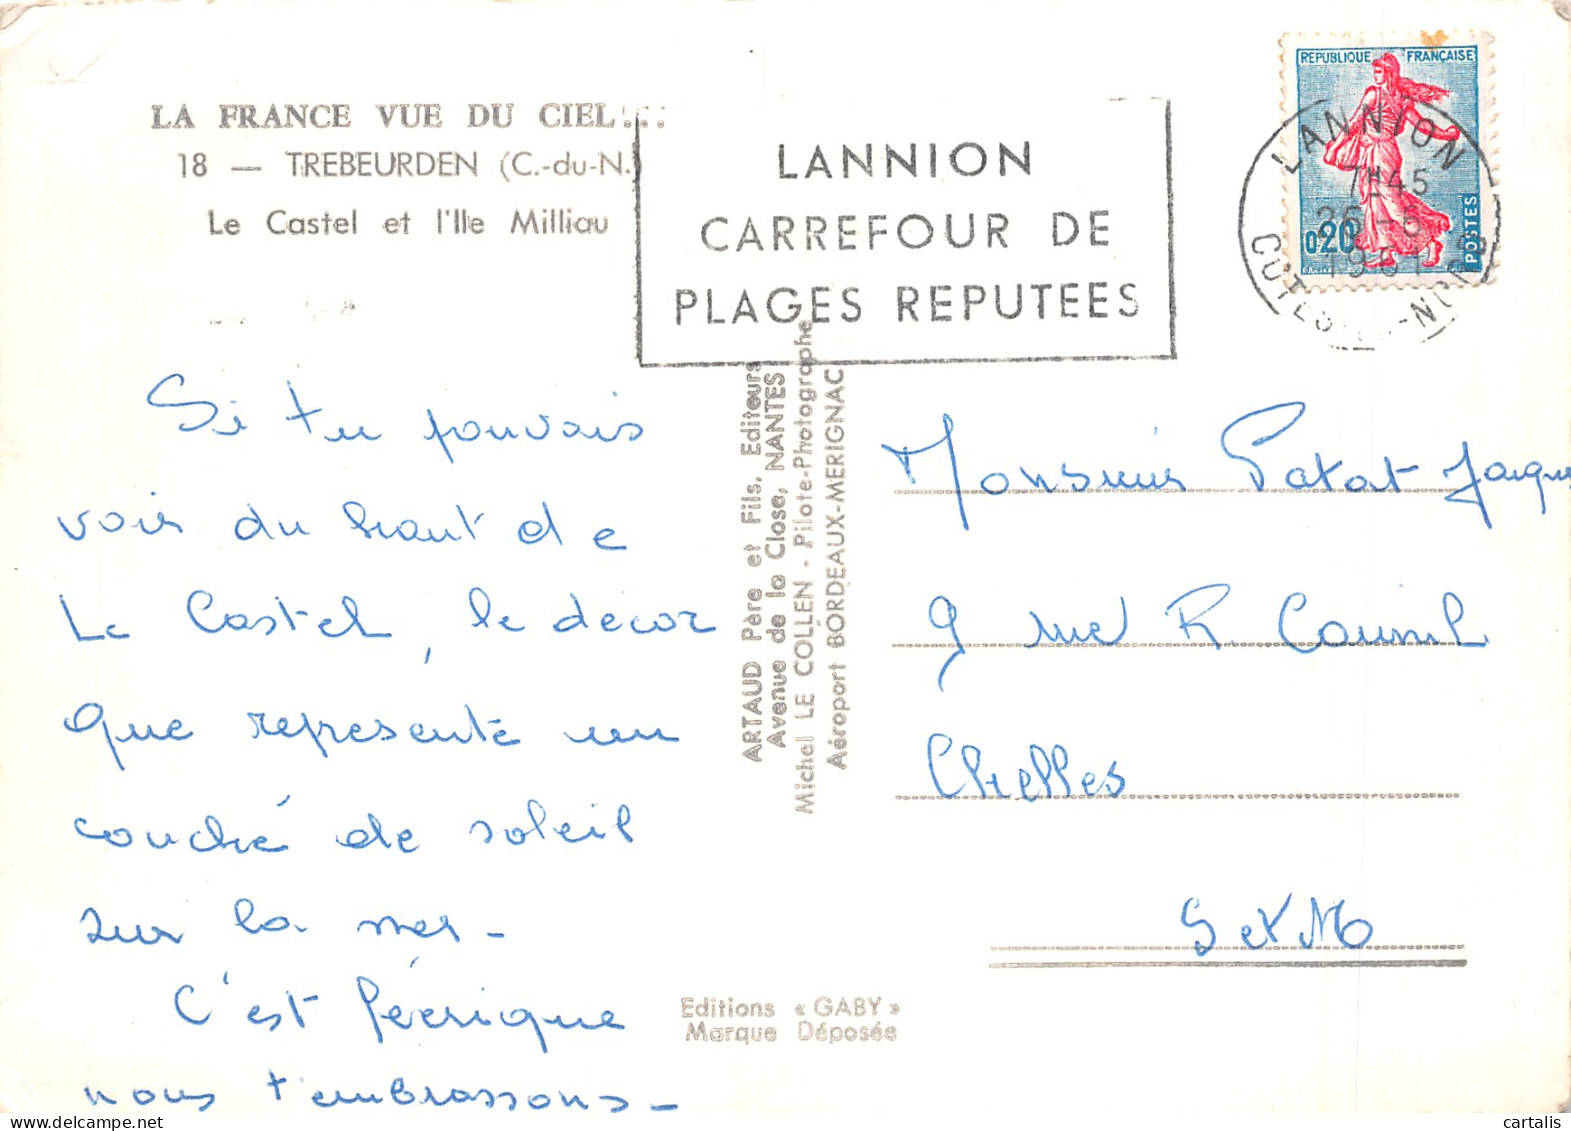 LA FRANCE VUE DU CIEL...
18 — TREBEURDEN (C.-du-N.)
Le Castel et l'Ile Milliau
LANNION
CARREFOUR DE
PLAGES REPUTEES
REPUBLIQUE FRANÇAISE
0,20
POSTES
LANNION
7H45
26-
1961
COTES-DU-NORD
Si tu pouvais
voir du haut de
Le Castel, le decor
que represente un
couché de soleil
sur la mer -
C'est féerique
nous t'embrassons -
ARTAUD Père et Fils, Editeurs
Avenue de la Close, NANTES
Michel LE COLLEN - Pilote-Photographe
Aéroport BORDEAUX-MERIGNAC
Editions « GABY »
Marque Déposée
Monsieur Patat Jacques
9 rue R.
Chelles
S et M
cartalis